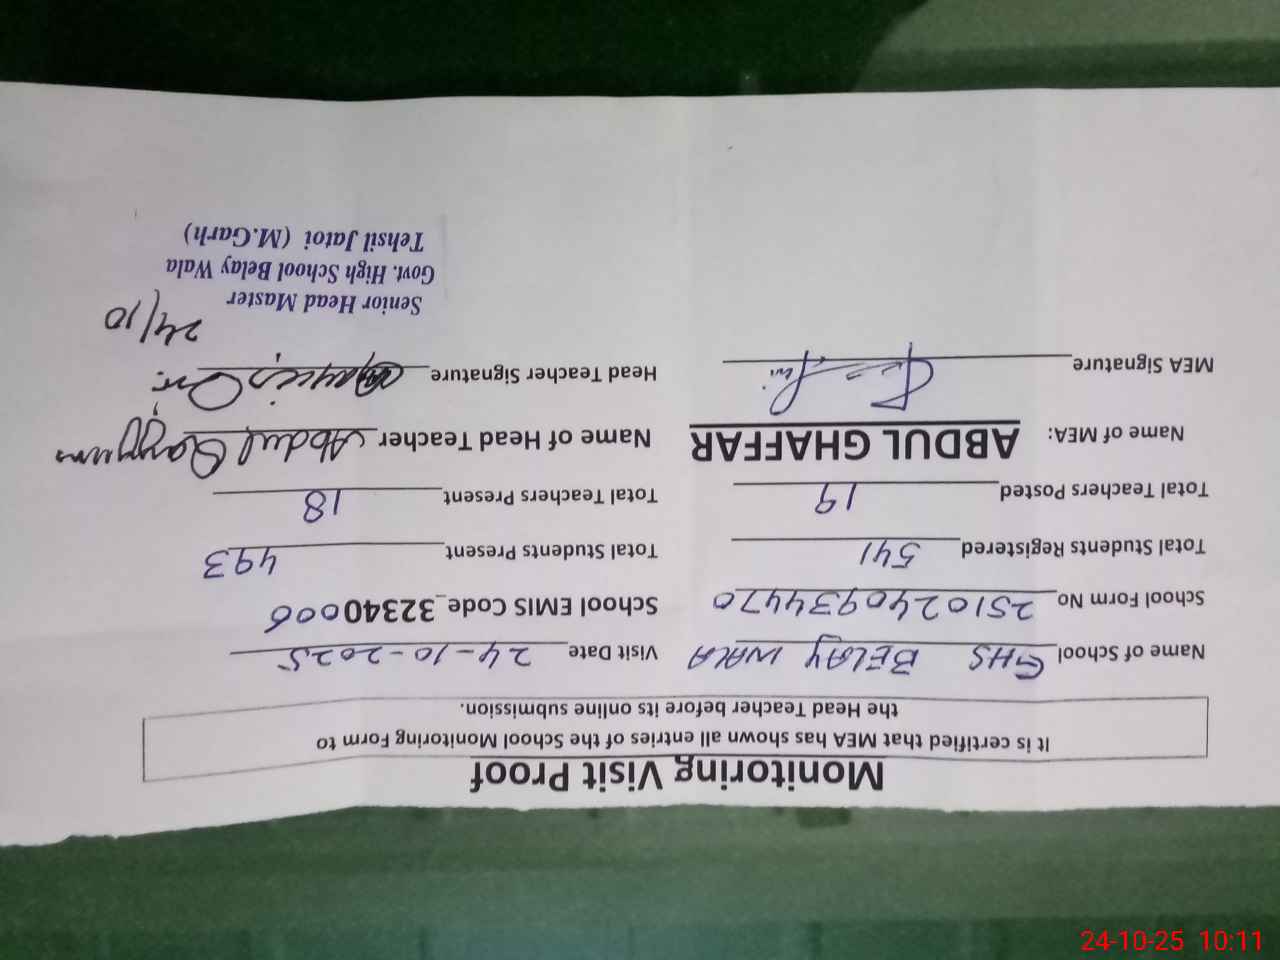 Monitoring Visit Proof
It is certified that MEA has shown all entries of the School Monitoring Form to
the Head Teacher before its online submission.
Name of School GHS BELAY WALA Visit Date 24-10-2025
School Form No 251024093447 0 School EMIS Code_32340006
Total Students Registered 541 Total Students Present 493
Total Teachers Posted 19 Total Teachers Present 18
Name of MEA: ABDUL GHAFFAR Name of Head Teacher Abdul Qayyum
MEA Signature Head Teacher Signature
24/10
Senior Head Master
Govt. High School Belay Wala
Tehsil Jatoi (M.Garh)
24-10-25 10:11